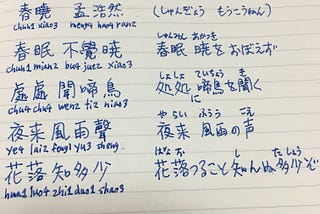 春曉 孟浩然 (しゅんぎょう もうこうねん)
chun1 xiao3 meng4 hao4 ran2
しゅんみん あかつき
春眠不覺暁 春眠 暁をおぼえず
chun1 mian2 bu4 jue2 xiao3
しょしょ ていちょう き
虛虛聞啼鳥 処処に 啼鳥を聞く
chu4 chu4 wen2 ti2 niao3
やらい ふうう こえ
夜来風雨聲 夜来 風雨の声
ye4 lai2 feng1 yu3 sheng1
はなお し たしょう
花落知多少 花落つること 知んぬ 多少ぞ
hua1 luo4 zhi1 duo1 shao3